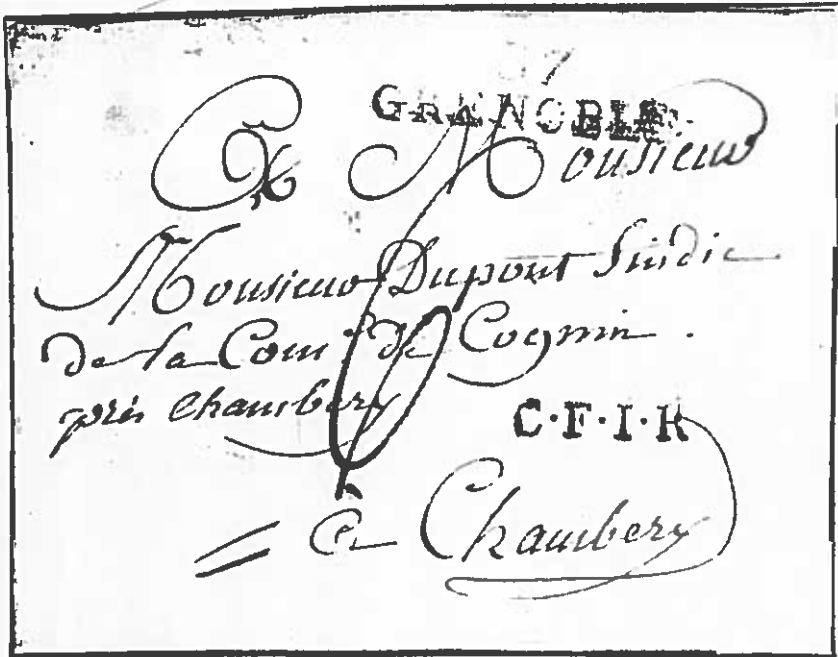 37
GRENOBLE
A Monsieur
Monsieur Dupont Sindic
de la Com. de Cognin.
près Chambery
C·F·I·R
= a Chambery